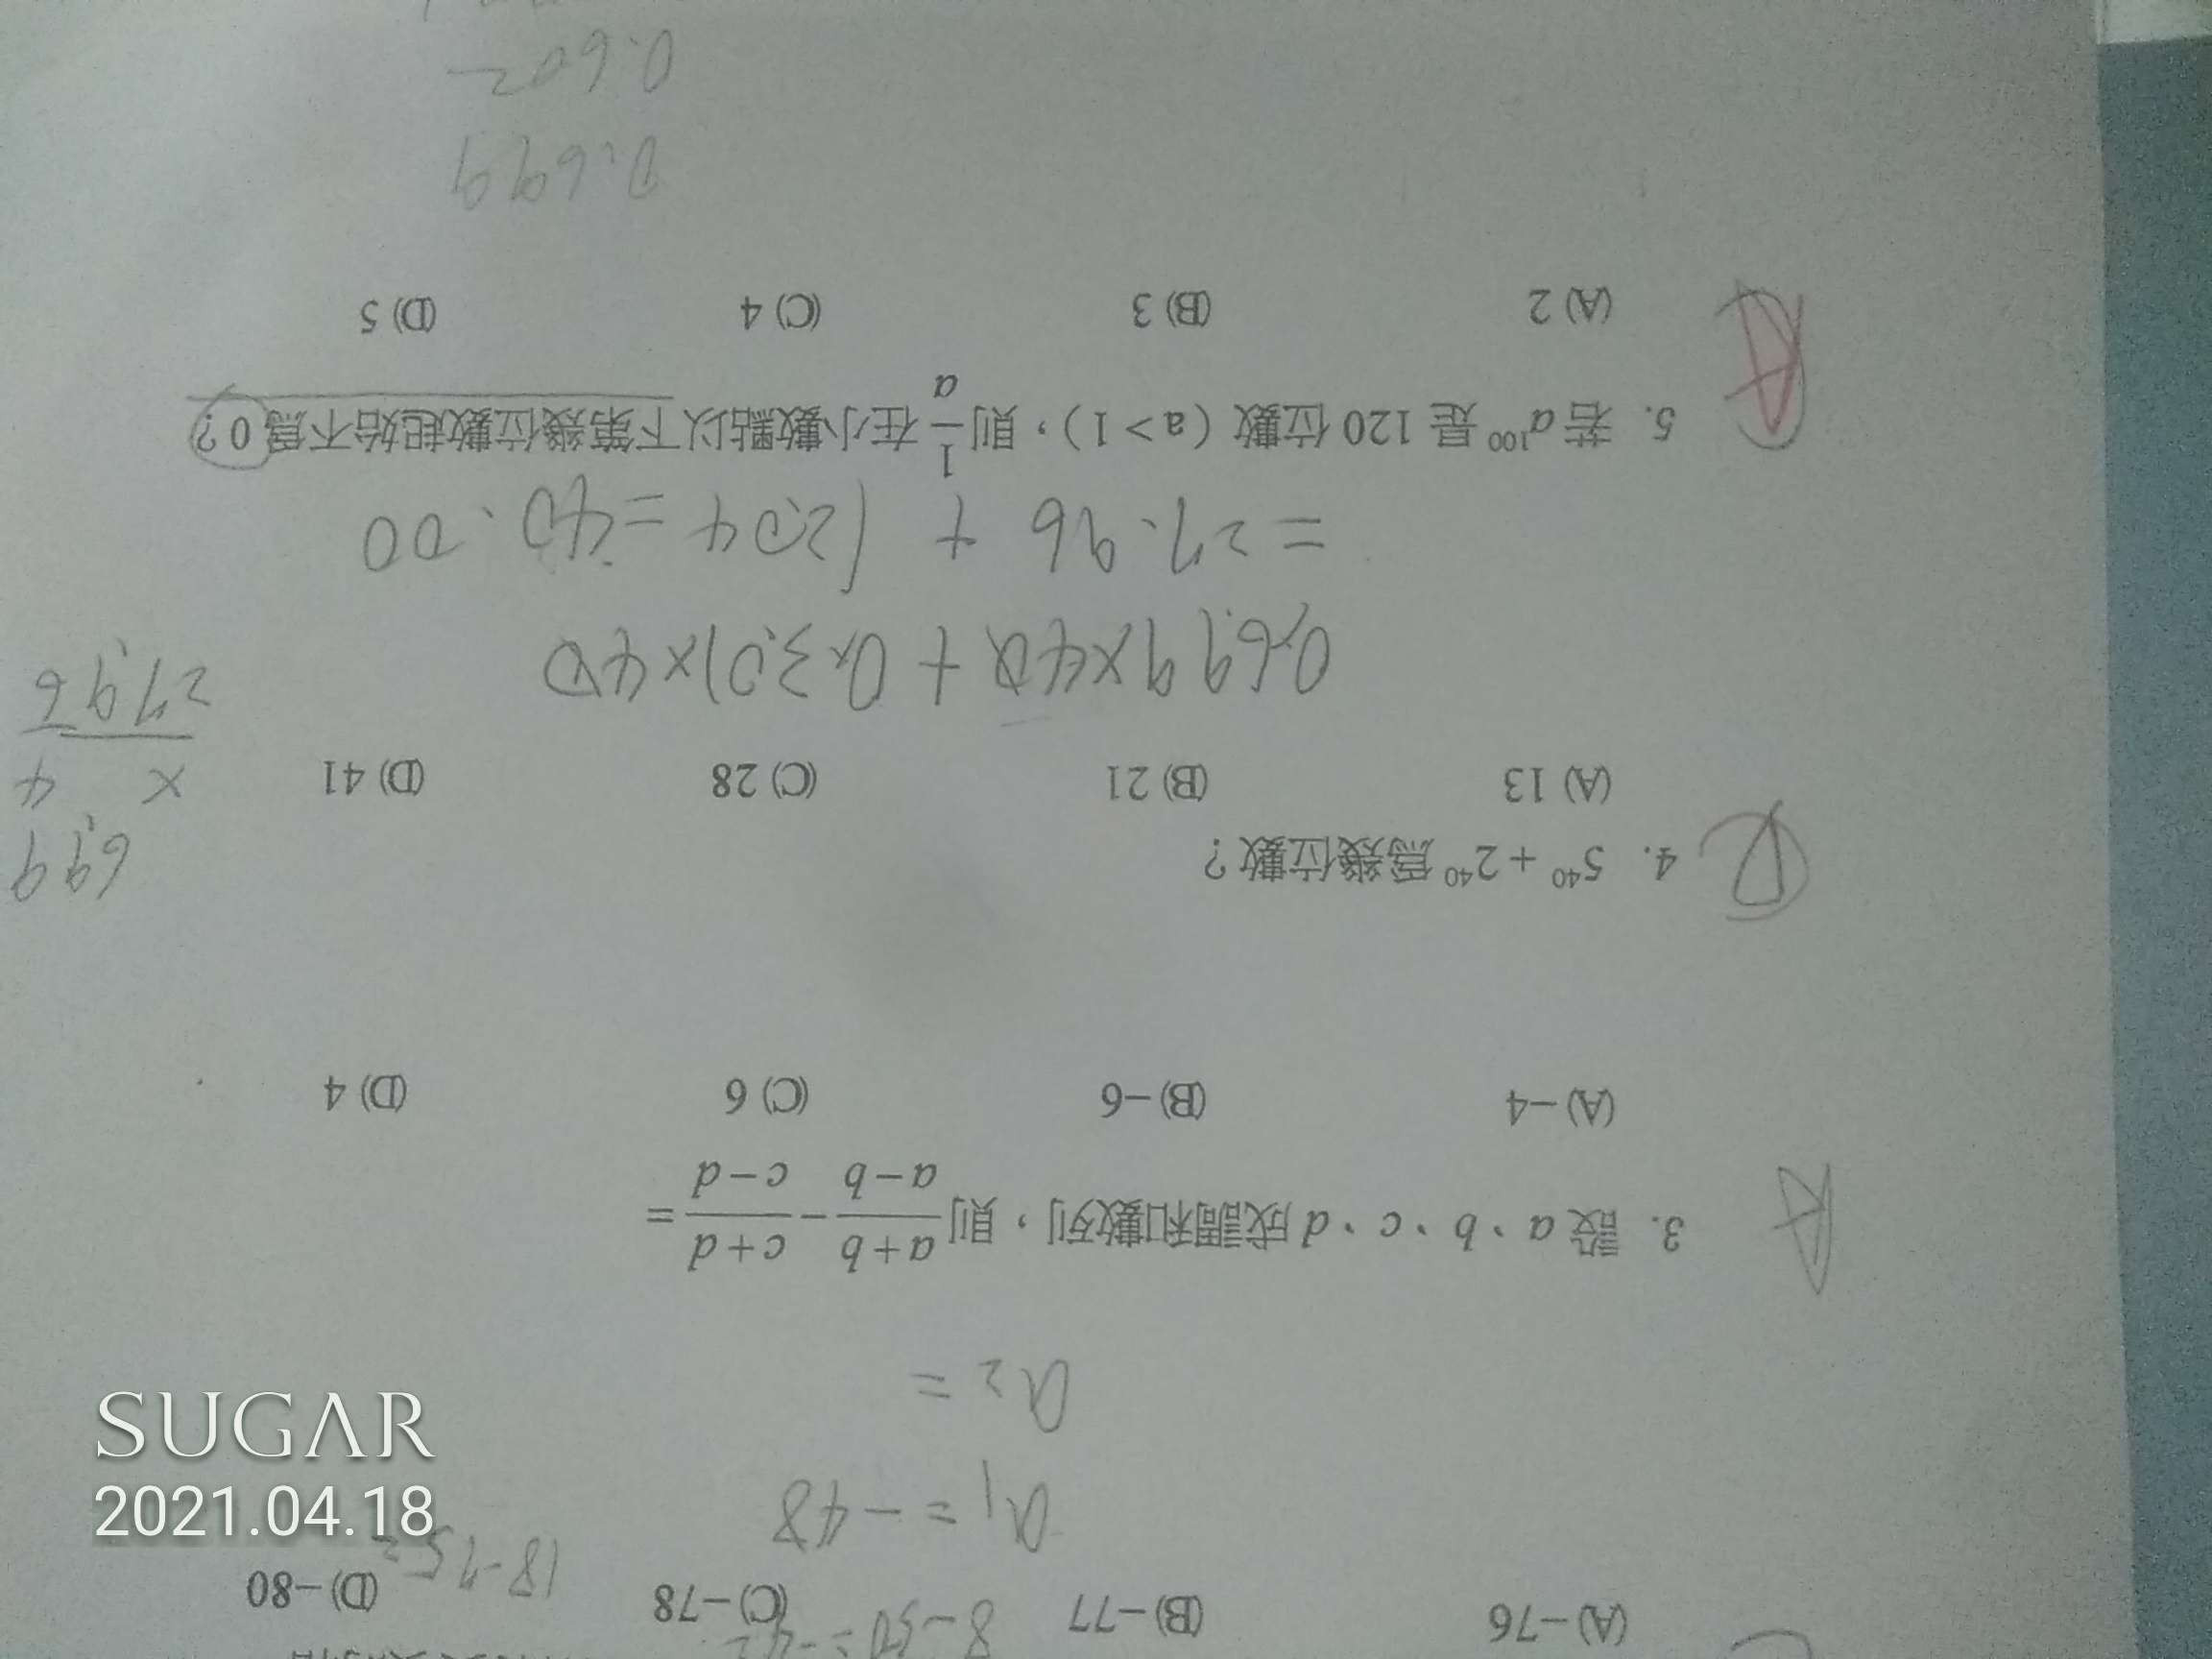 (A) −76 (B) −77 (C) −78 (D) −80
8−50=−42
18−75=
a1 = −48
a2 =
A 3. 設 a、b、c、d 成調和數列，則 a+b/a−b − c+d/c−d =
(A) −4 (B) −6 (C) 6 (D) 4
D 4. 5⁴⁰ + 2⁴⁰ 為幾位數？
(A) 13 (B) 21 (C) 28 (D) 41
6.99
× 4
27.96
0.699×40 + 0.301×40
= 27.96 + 12.04 = 40.00
A 5. 若 a¹⁰⁰ 是 120 位數（a > 1），則 1/a 在小數點以下第幾位數起始不為 0？
(A) 2 (B) 3 (C) 4 (D) 5
0.699
0.602
SUGAR
2021.04.18